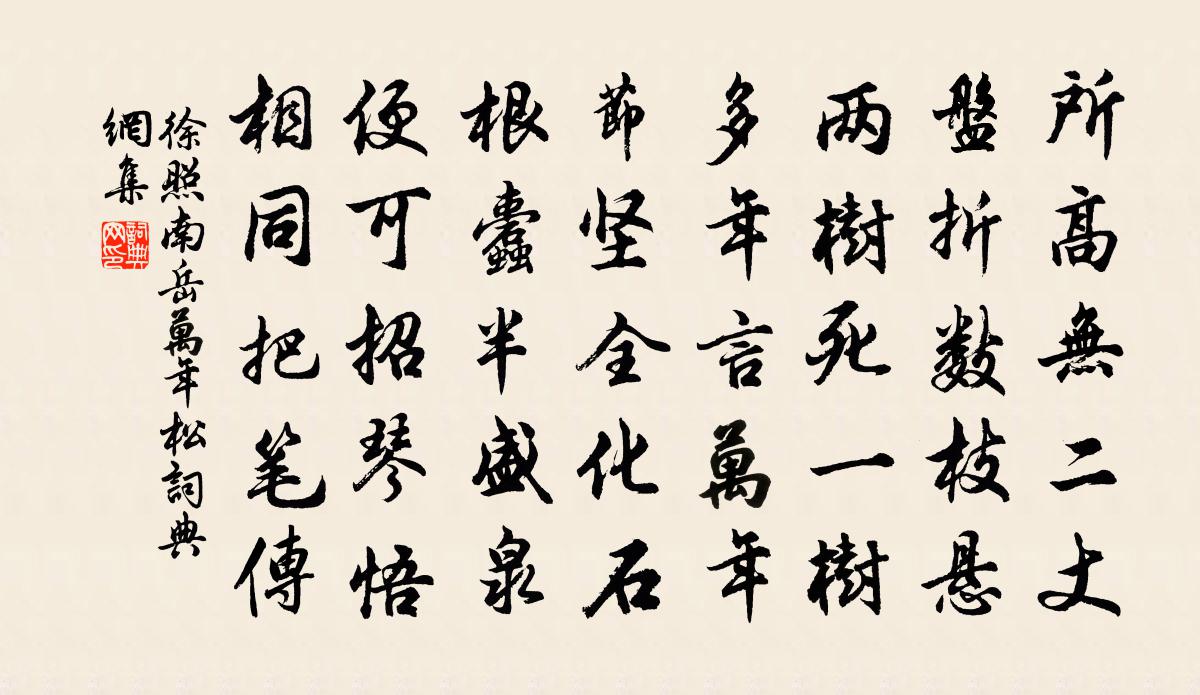 所高無二丈
盤折数枝悬
两樹死一樹
多年言萬年
節坚全化石
根蠹半盛泉
便可招琴悟
相同把笔傳
徐照南岳萬年松詞典
網集
詞典
网印